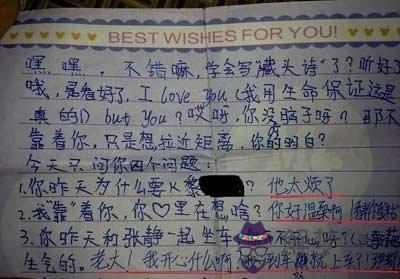 BEST WISHES FOR YOU!
嘿嘿，不错嘛，学会写"藏头诗"了？听好了
哦，是看好了，I love you（我用生命保证这是
真的）but you？哎呀，你没脑子呀？耶不
靠着你，只是想拉近距离，你的明白？
今天只问你四个问题：
1.你昨天为什么要K黎 ？他太烦了
2.我"靠"着你，你♡里在想啥？你好温柔啊
3.你昨天和张静一起坐车
生气的。老大！我开心什么啊 上车了！